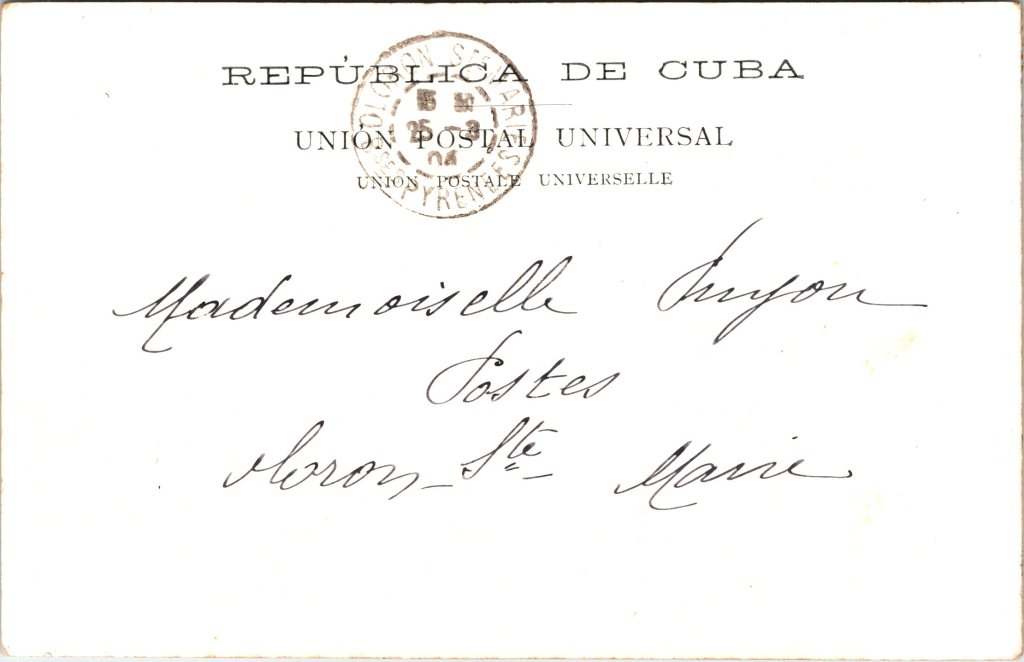 REPÚBLICA DE CUBA
UNIÓN POSTAL UNIVERSAL
UNION POSTALE UNIVERSELLE
OLORON STE MARIE
BSES PYRENEES
15
25 -3
04
Mademoiselle
Postes
oloron - Ste - Marie